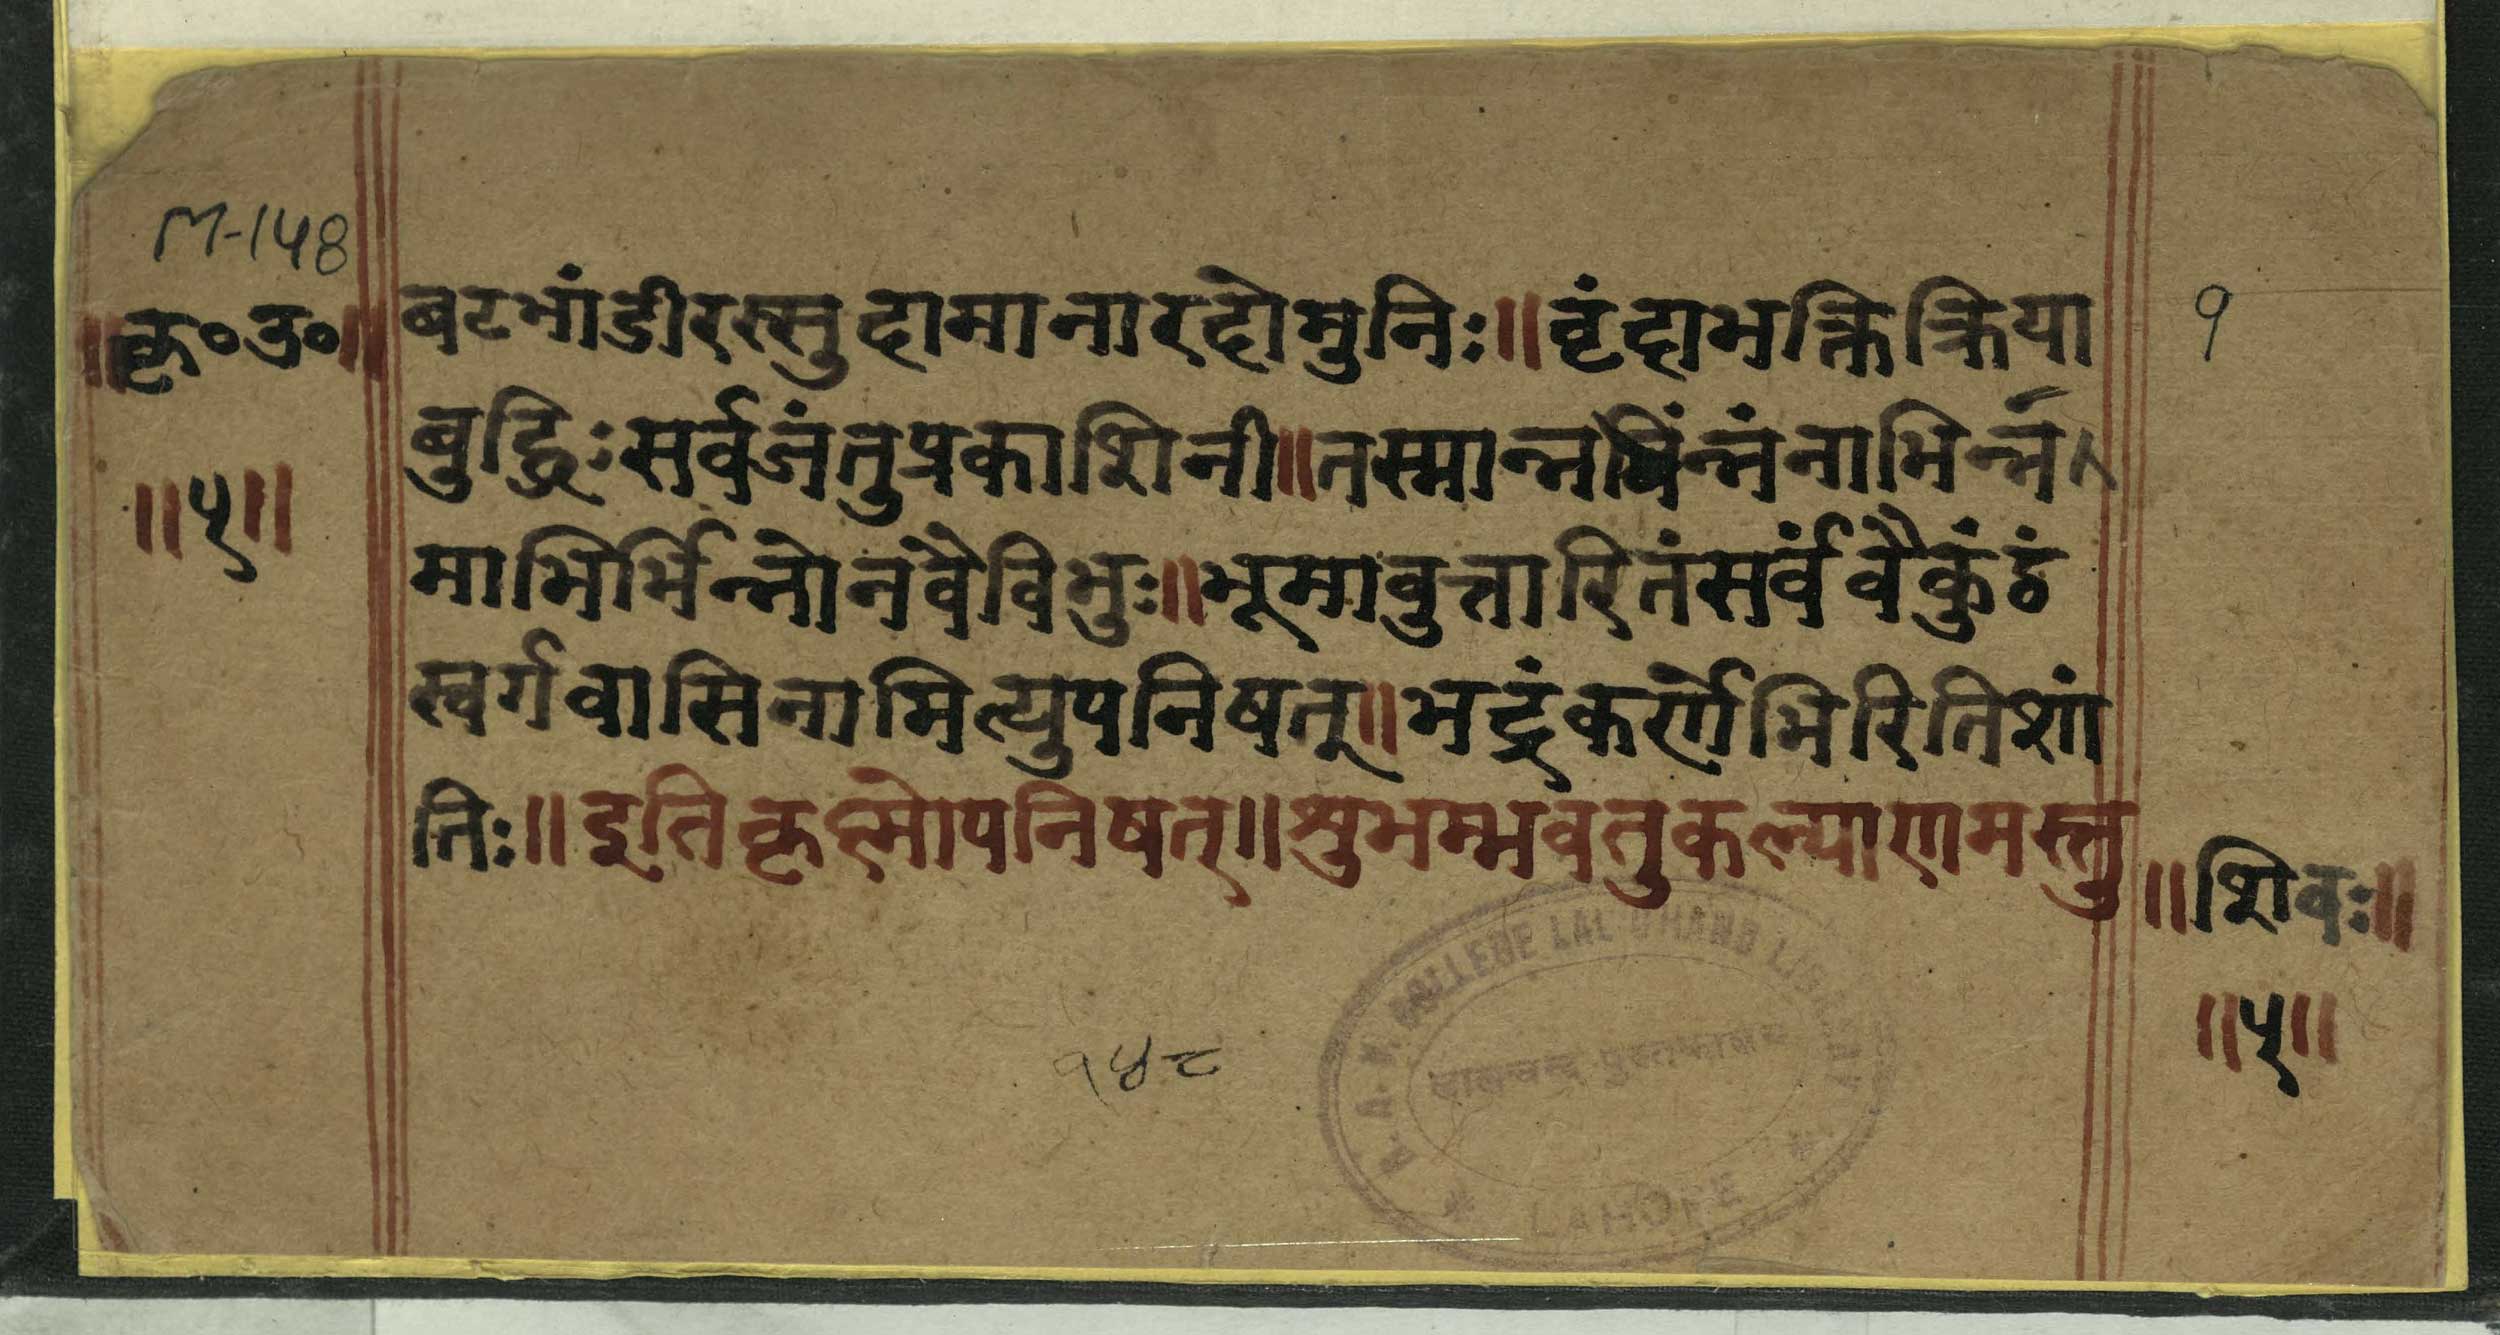 M-148
॥कृ०उ०॥
॥५॥
बटभांडीरस्सुदामानारदोमुनिः॥वृंदाभक्तिक्रिया
१
बुद्धिःसर्वजंतुप्रकाशिनी॥तस्मान्नभिंन्नंनाभिर्न्न
माभिर्भिन्नोनवैविभुः॥भूमावुत्तारितंसर्वंवैकुंठं
स्वर्गवासिनामित्युपनिषत्॥भद्रंकर्णेभिरितिशां
तिः॥इतिकृष्णोपनिषत्॥शुभम्भवतुकल्याणमस्तु
॥शिवः॥
॥५॥
१४८
D.A.V. COLLEGE LAL CHAND LIBRARY
लालचन्द पुस्तकालय
LAHORE